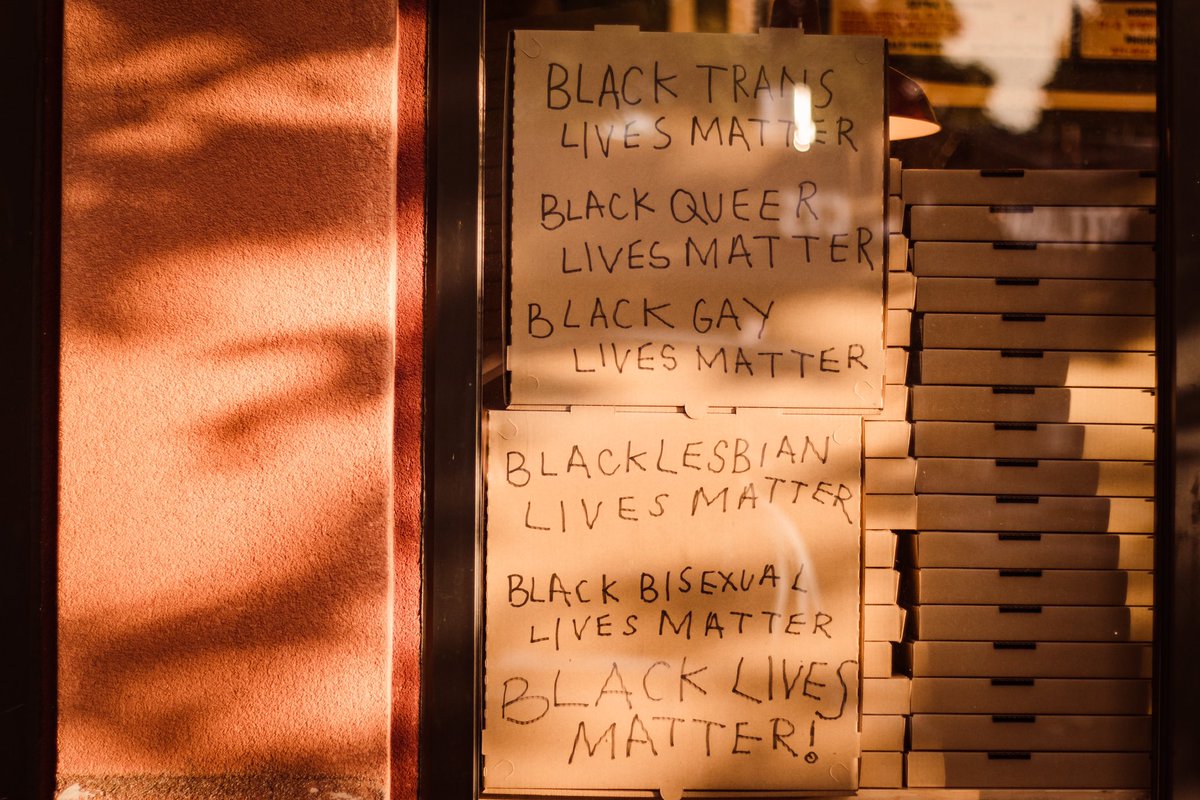 BLACK TRANS
LIVES MATTER
BLACK QUEER
LIVES MATTER
BLACK GAY
LIVES MATTER
BLACK LESBIAN
LIVES MATTER
BLACK BISEXUAL
LIVES MATTER
BLACK LIVES
MATTER!